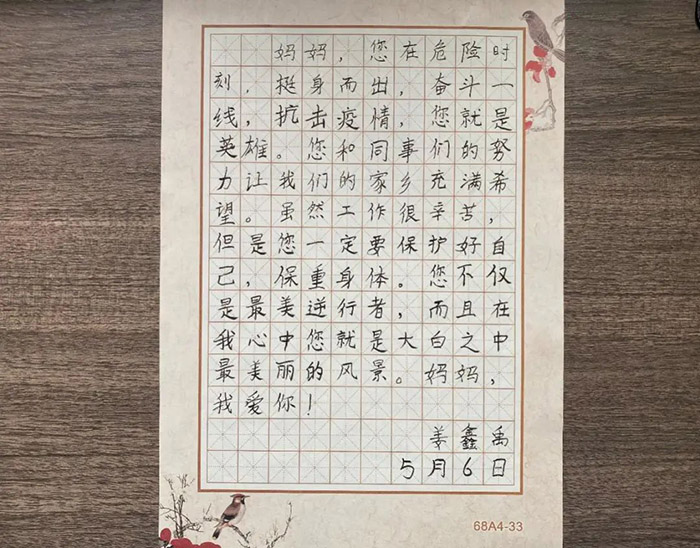 妈妈，您在危险时
刻，挺身而出，奋斗一
线，抗击疫情，您就是
英雄。您和同事们的努
力让我们的家乡充满希
望。虽然工作很辛苦，
但是您一定要保护好自
己，保重身体。您不仅
是最美逆行者，而且在
我心中您就是大白之中
最美丽的风景。妈妈，
我爱你！
姜鑫禹
5月6日
68A4-33